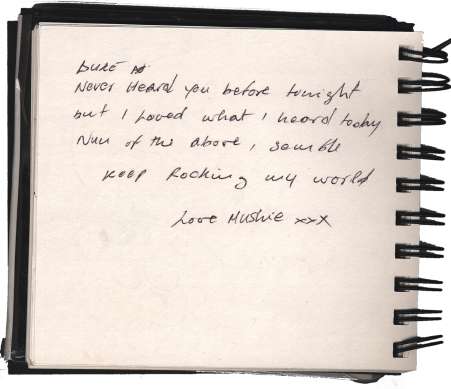 Never Heard you before tonight
but I Loved what I heard today
Nun of the above,
Keep Rocking my world
Love Mushie xxx